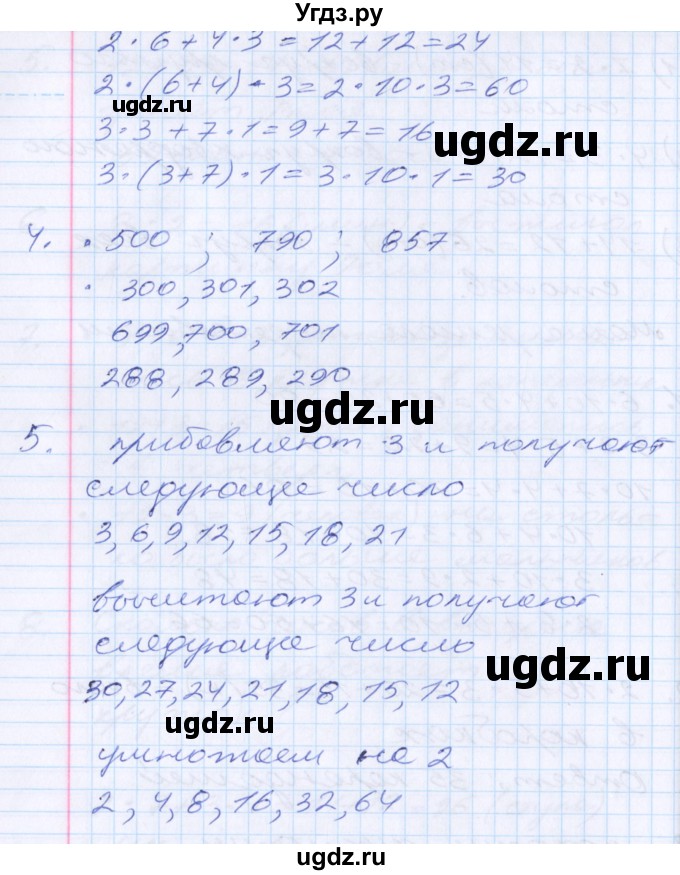 Угдз.ру
2·6+4·3=12+12=24
2·(6+4)·3=2·10·3=60
угдз.ру
3·3+7·1=9+7=16
угдз.ру
3·(3+7)·1=3·10·1=30
4. · 500 ; 790 ; 857
· 300, 301, 302
699, 700, 701
288, 289, 290
угдз.ру
5. прибовляют 3 и получают
следующее число
3, 6, 9, 12, 15, 18, 21
вычитают 3 и получают
следующе число
угдз.ру
30, 27, 24, 21, 18, 15, 12
угдз.ру
умножаем на 2
2, 4, 8, 16, 32, 64
угдз.ру